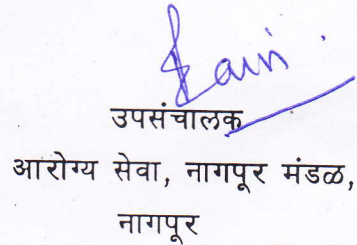 उपसंचालक
आरोग्य सेवा, नागपूर मंडळ,
नागपूर